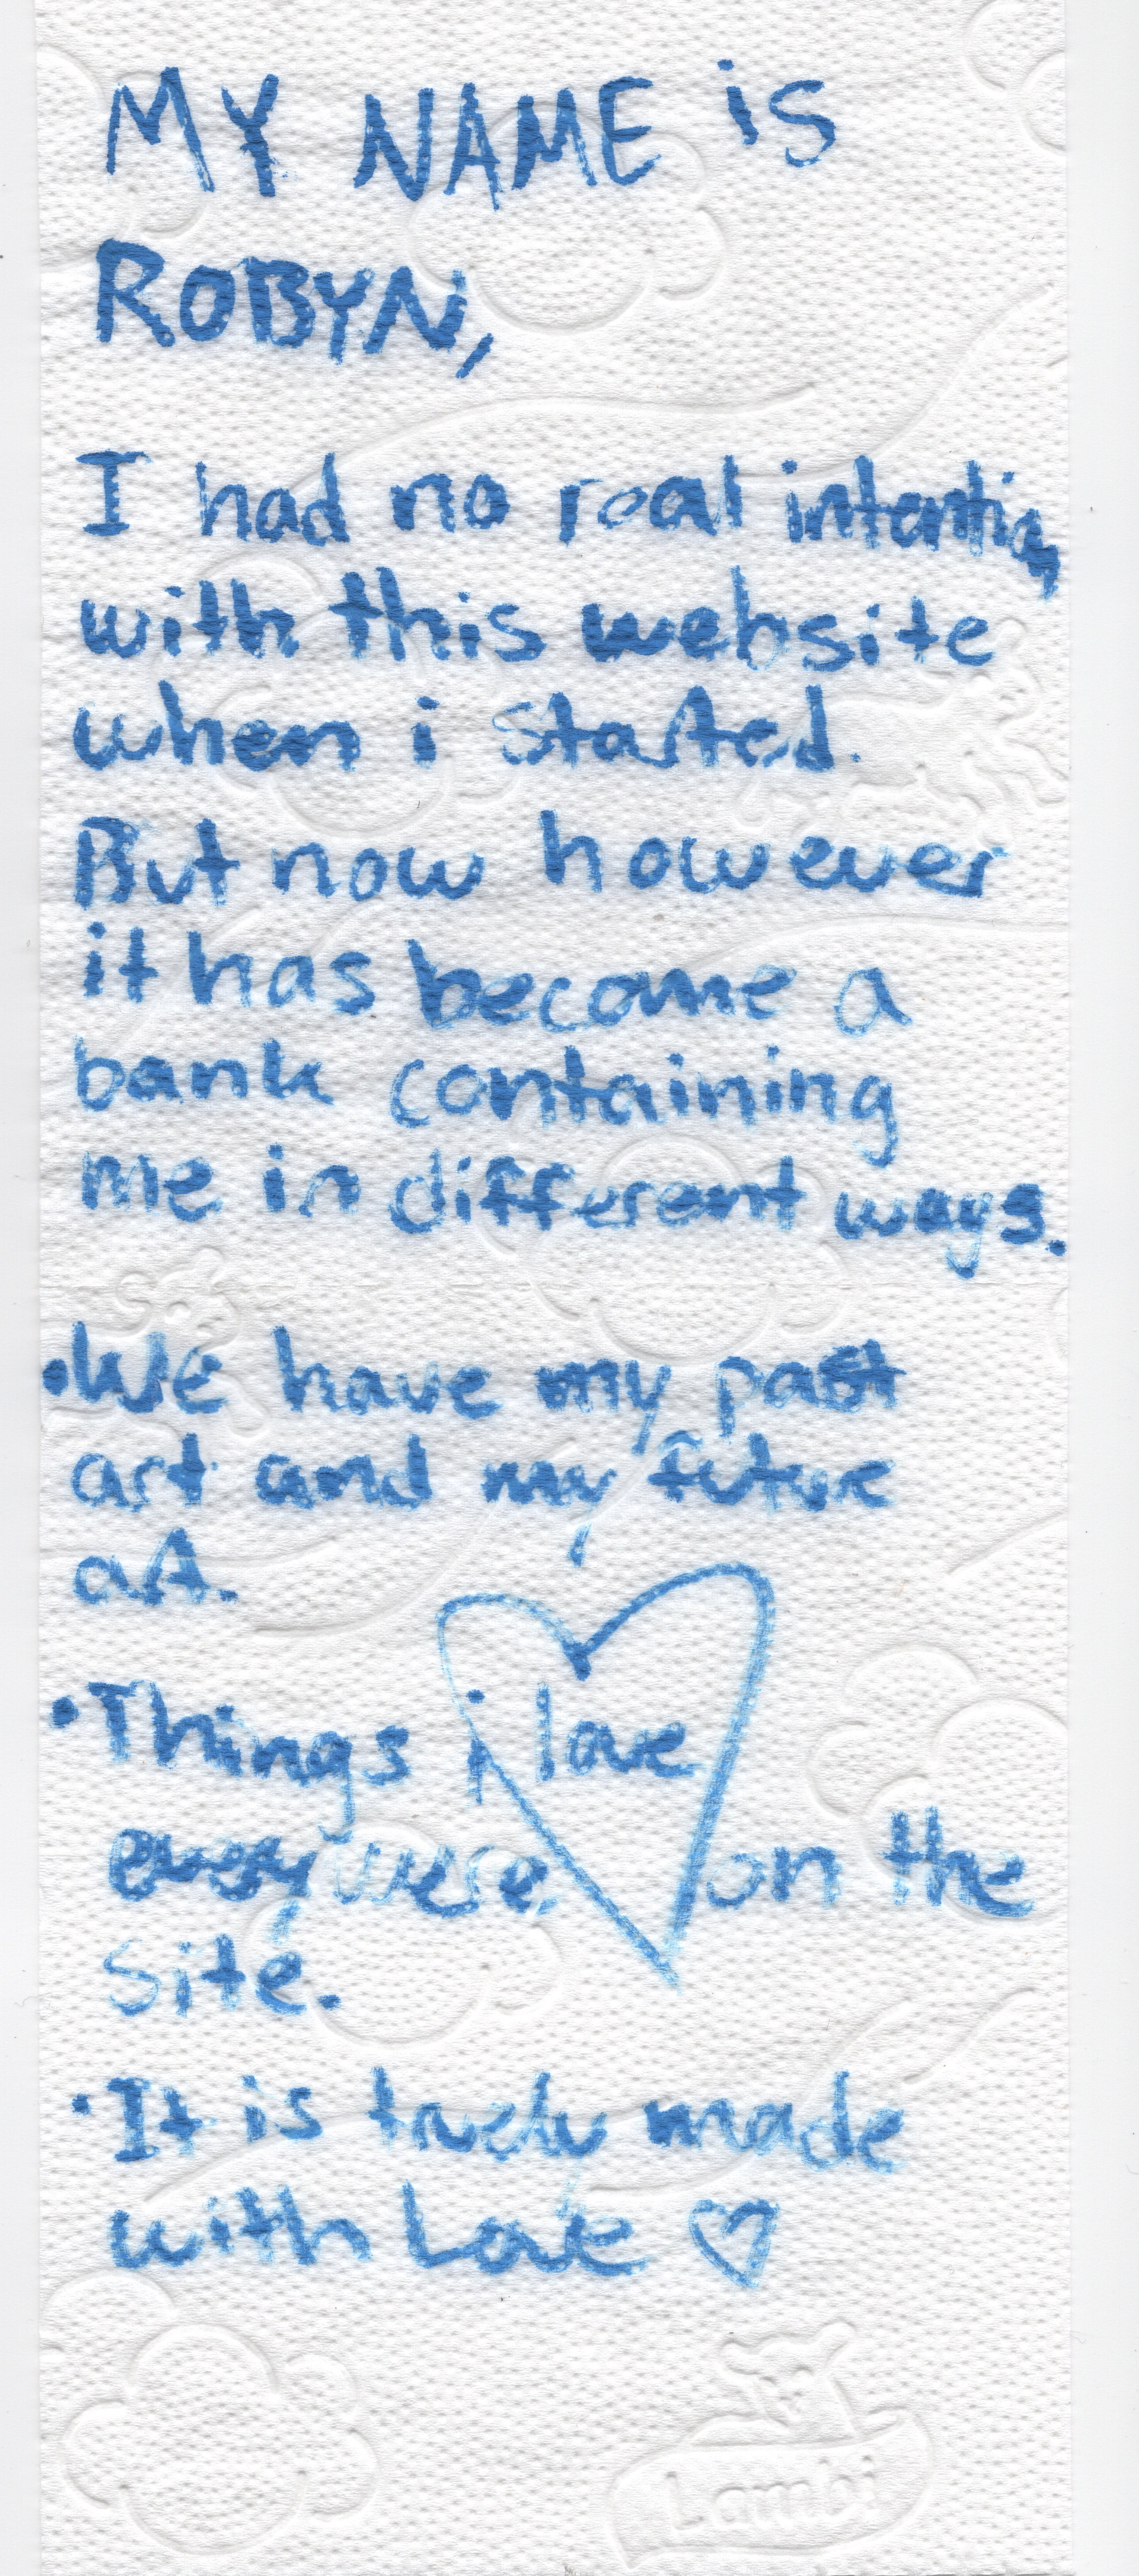 MY NAME is
ROBYN,
I had no real intention
with this website
when i started.
But now however
it has become a
bank containing
me in different ways.
•We have my past
art and my future
art.
•Things i love
everywere on the
site.
•It is truely made
with Love ♡
Lambi